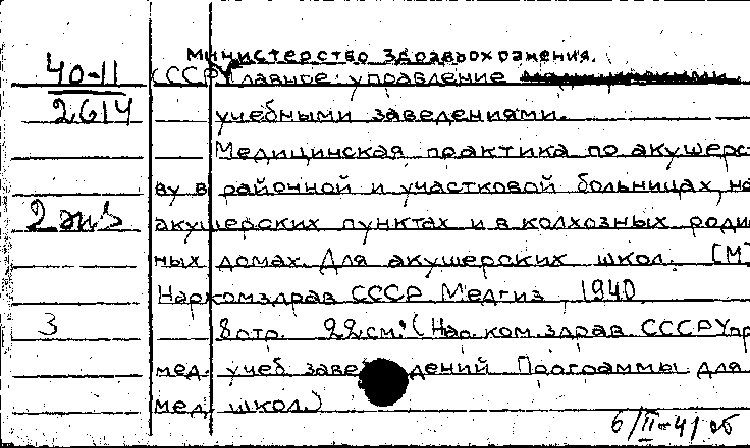 Министерство Здравоохранения.
40-11 СССР Главное управление
2614 учебными заведениями.
Медицинская практика по акушерс
ву в районной и участковой больницах, на
2 экз акушерских пунктах и в колхозных роди
ных домах. Для акушерских школ. [М]
Наркомздрав СССР Медгиз 1940
3 8 стр. 22 см. (Нар. ком. здрав СССР Упр
мед. учеб. заведений Программы для
мед. школ.)
6/II-41